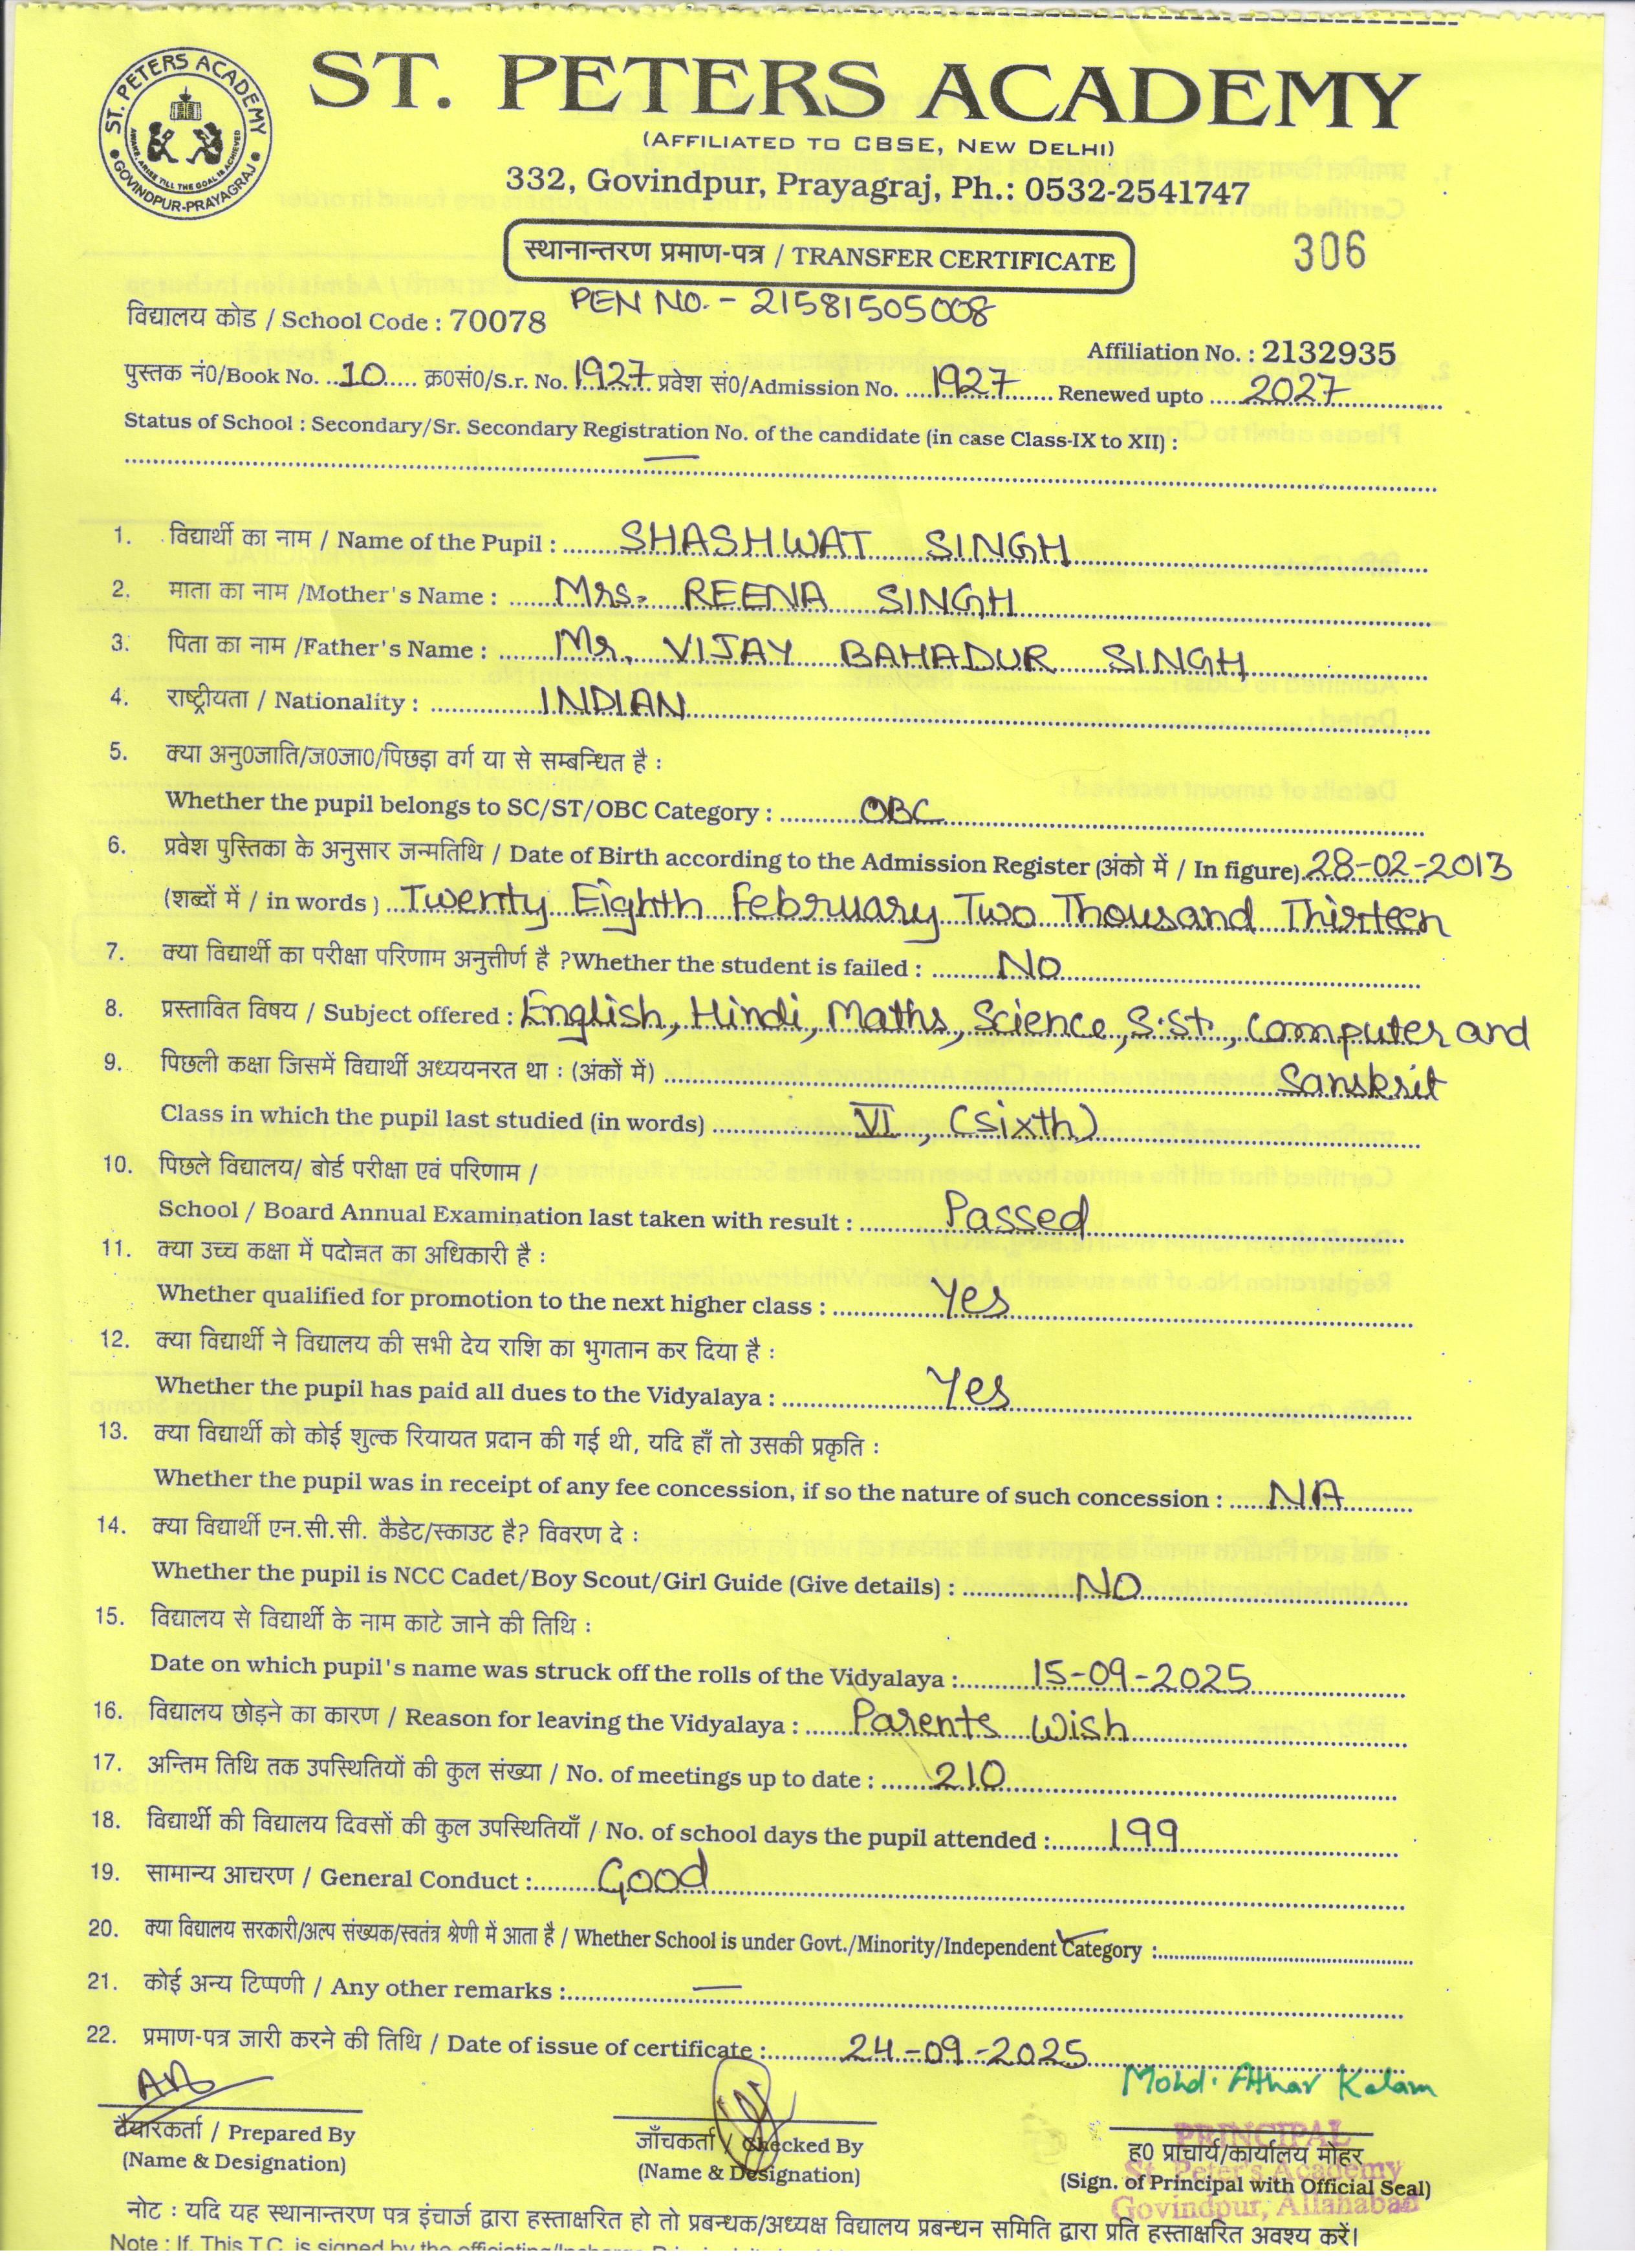 ST. PETERS ACADEMY
GOVINDPUR-PRAYAGRAJ
AWAKE, ARISE TILL THE GOAL IS ACHIEVED
ST. PETERS ACADEMY
(AFFILIATED TO CBSE, NEW DELHI)
332, Govindpur, Prayagraj, Ph.: 0532-2541747
स्थानान्तरण प्रमाण-पत्र / TRANSFER CERTIFICATE
306
PEN NO. - 21581505008
विद्यालय कोड / School Code : 70078
Affiliation No. : 2132935
पुस्तक नं0/Book No. ..10..... क्र0सं0/S.r. No. 1927 प्रवेश सं0/Admission No. ....1927....... Renewed upto .....2027...............
Status of School : Secondary/Sr. Secondary Registration No. of the candidate (in case Class-IX to XII) :
—
1. विद्यार्थी का नाम / Name of the Pupil : SHASHWAT SINGH
2. माता का नाम /Mother's Name : Mrs. REENA SINGH
3. पिता का नाम /Father's Name : Mr. VIJAY BAHADUR SINGH
4. राष्ट्रीयता / Nationality : INDIAN
5. क्या अनु0जाति/ज0जा0/पिछड़ा वर्ग या से सम्बन्धित है :
Whether the pupil belongs to SC/ST/OBC Category : OBC
6. प्रवेश पुस्तिका के अनुसार जन्मतिथि / Date of Birth according to the Admission Register (अंको में / In figure) 28-02-2013
(शब्दों में / in words ) Twenty Eighth February Two Thousand Thirteen
7. क्या विद्यार्थी का परीक्षा परिणाम अनुत्तीर्ण है ?Whether the student is failed : No
8. प्रस्तावित विषय / Subject offered : English, Hindi, Maths, Science, S.St., Computer and
9. पिछली कक्षा जिसमें विद्यार्थी अध्ययनरत था : (अंकों में) Sanskrit
Class in which the pupil last studied (in words) VI, (Sixth)
10. पिछले विद्यालय/ बोर्ड परीक्षा एवं परिणाम /
School / Board Annual Examination last taken with result : Passed
11. क्या उच्च कक्षा में पदोन्नत का अधिकारी है :
Whether qualified for promotion to the next higher class : Yes
12. क्या विद्यार्थी ने विद्यालय की सभी देय राशि का भुगतान कर दिया है :
Whether the pupil has paid all dues to the Vidyalaya : Yes
13. क्या विद्यार्थी को कोई शुल्क रियायत प्रदान की गई थी, यदि हाँ तो उसकी प्रकृति :
Whether the pupil was in receipt of any fee concession, if so the nature of such concession : NA
14. क्या विद्यार्थी एन.सी.सी. कैडेट/स्काउट है? विवरण दे :
Whether the pupil is NCC Cadet/Boy Scout/Girl Guide (Give details) : NO
15. विद्यालय से विद्यार्थी के नाम काटे जाने की तिथि :
Date on which pupil's name was struck off the rolls of the Vidyalaya : 15-09-2025
16. विद्यालय छोड़ने का कारण / Reason for leaving the Vidyalaya : Parents Wish
17. अन्तिम तिथि तक उपस्थितियों की कुल संख्या / No. of meetings up to date : 210
18. विद्यार्थी की विद्यालय दिवसों की कुल उपस्थितियाँ / No. of school days the pupil attended : 199
19. सामान्य आचरण / General Conduct : Good
20. क्या विद्यालय सरकारी/अल्प संख्यक/स्वतंत्र श्रेणी में आता है / Whether School is under Govt./Minority/Independent Category :
21. कोई अन्य टिप्पणी / Any other remarks : —
22. प्रमाण-पत्र जारी करने की तिथि / Date of issue of certificate : 24-09-2025
Mohd. Athar Kalam
तैयारकर्ता / Prepared By
जाँचकर्ता / Checked By
PRINCIPAL
ह0 प्राचार्य/कार्यालय मोहर
(Name & Designation)
(Name & Designation)
St. Peter's Academy
(Sign. of Principal with Official Seal)
Govindpur, Allahabad
नोट : यदि यह स्थानान्तरण पत्र इंचार्ज द्वारा हस्ताक्षरित हो तो प्रबन्धक/अध्यक्ष विद्यालय प्रबन्धन समिति द्वारा प्रति हस्ताक्षरित अवश्य करें।
Note : If. This T.C. is signed by the